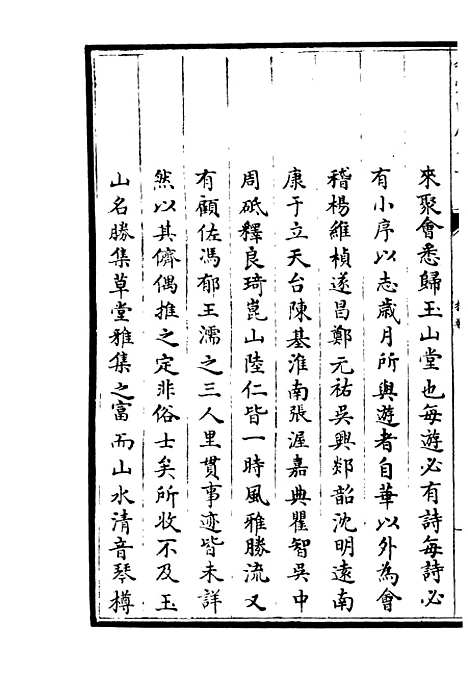 來聚會悉歸玉山堂也每遊必有詩每詩必
有小序以志歲月所與遊者自華以外為會
稽楊維楨遂昌鄭元祐吳興郯韶沈明遠南
康于立天台陳基淮南張渥嘉興瞿智吳中
周砥釋良琦崑山陸仁皆一時風雅勝流又
有顧佐馮郁王濡之三人里貫事迹皆未詳
然以其儕偶推之定非俗士矣所收不及玉
山名勝集草堂雅集之富而山水清音琴樽